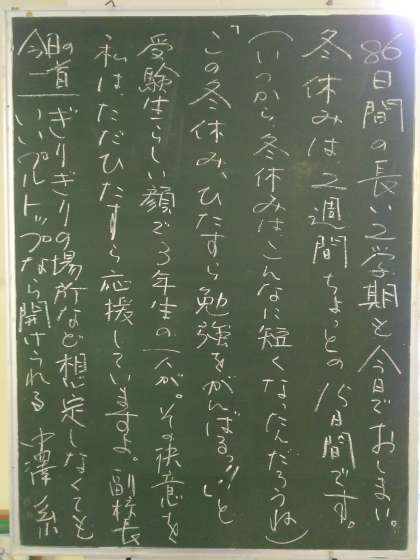 86日間の長い2学期も今日でおしまい。
冬休みは、2週間ちょっとの15日間です。
(いつから、冬休みはこんなに短くなったんだろうね)
「この冬休み、ひたすら勉強をがんばるっ!!」と
受験生らしい顔で3年生の一人が。その決意を
私は、ただひたすら応援していますよ。副校長
今日の一首 ぎりぎりの場所など想定しなくても
いいプルトップなら開けられる 中澤 系